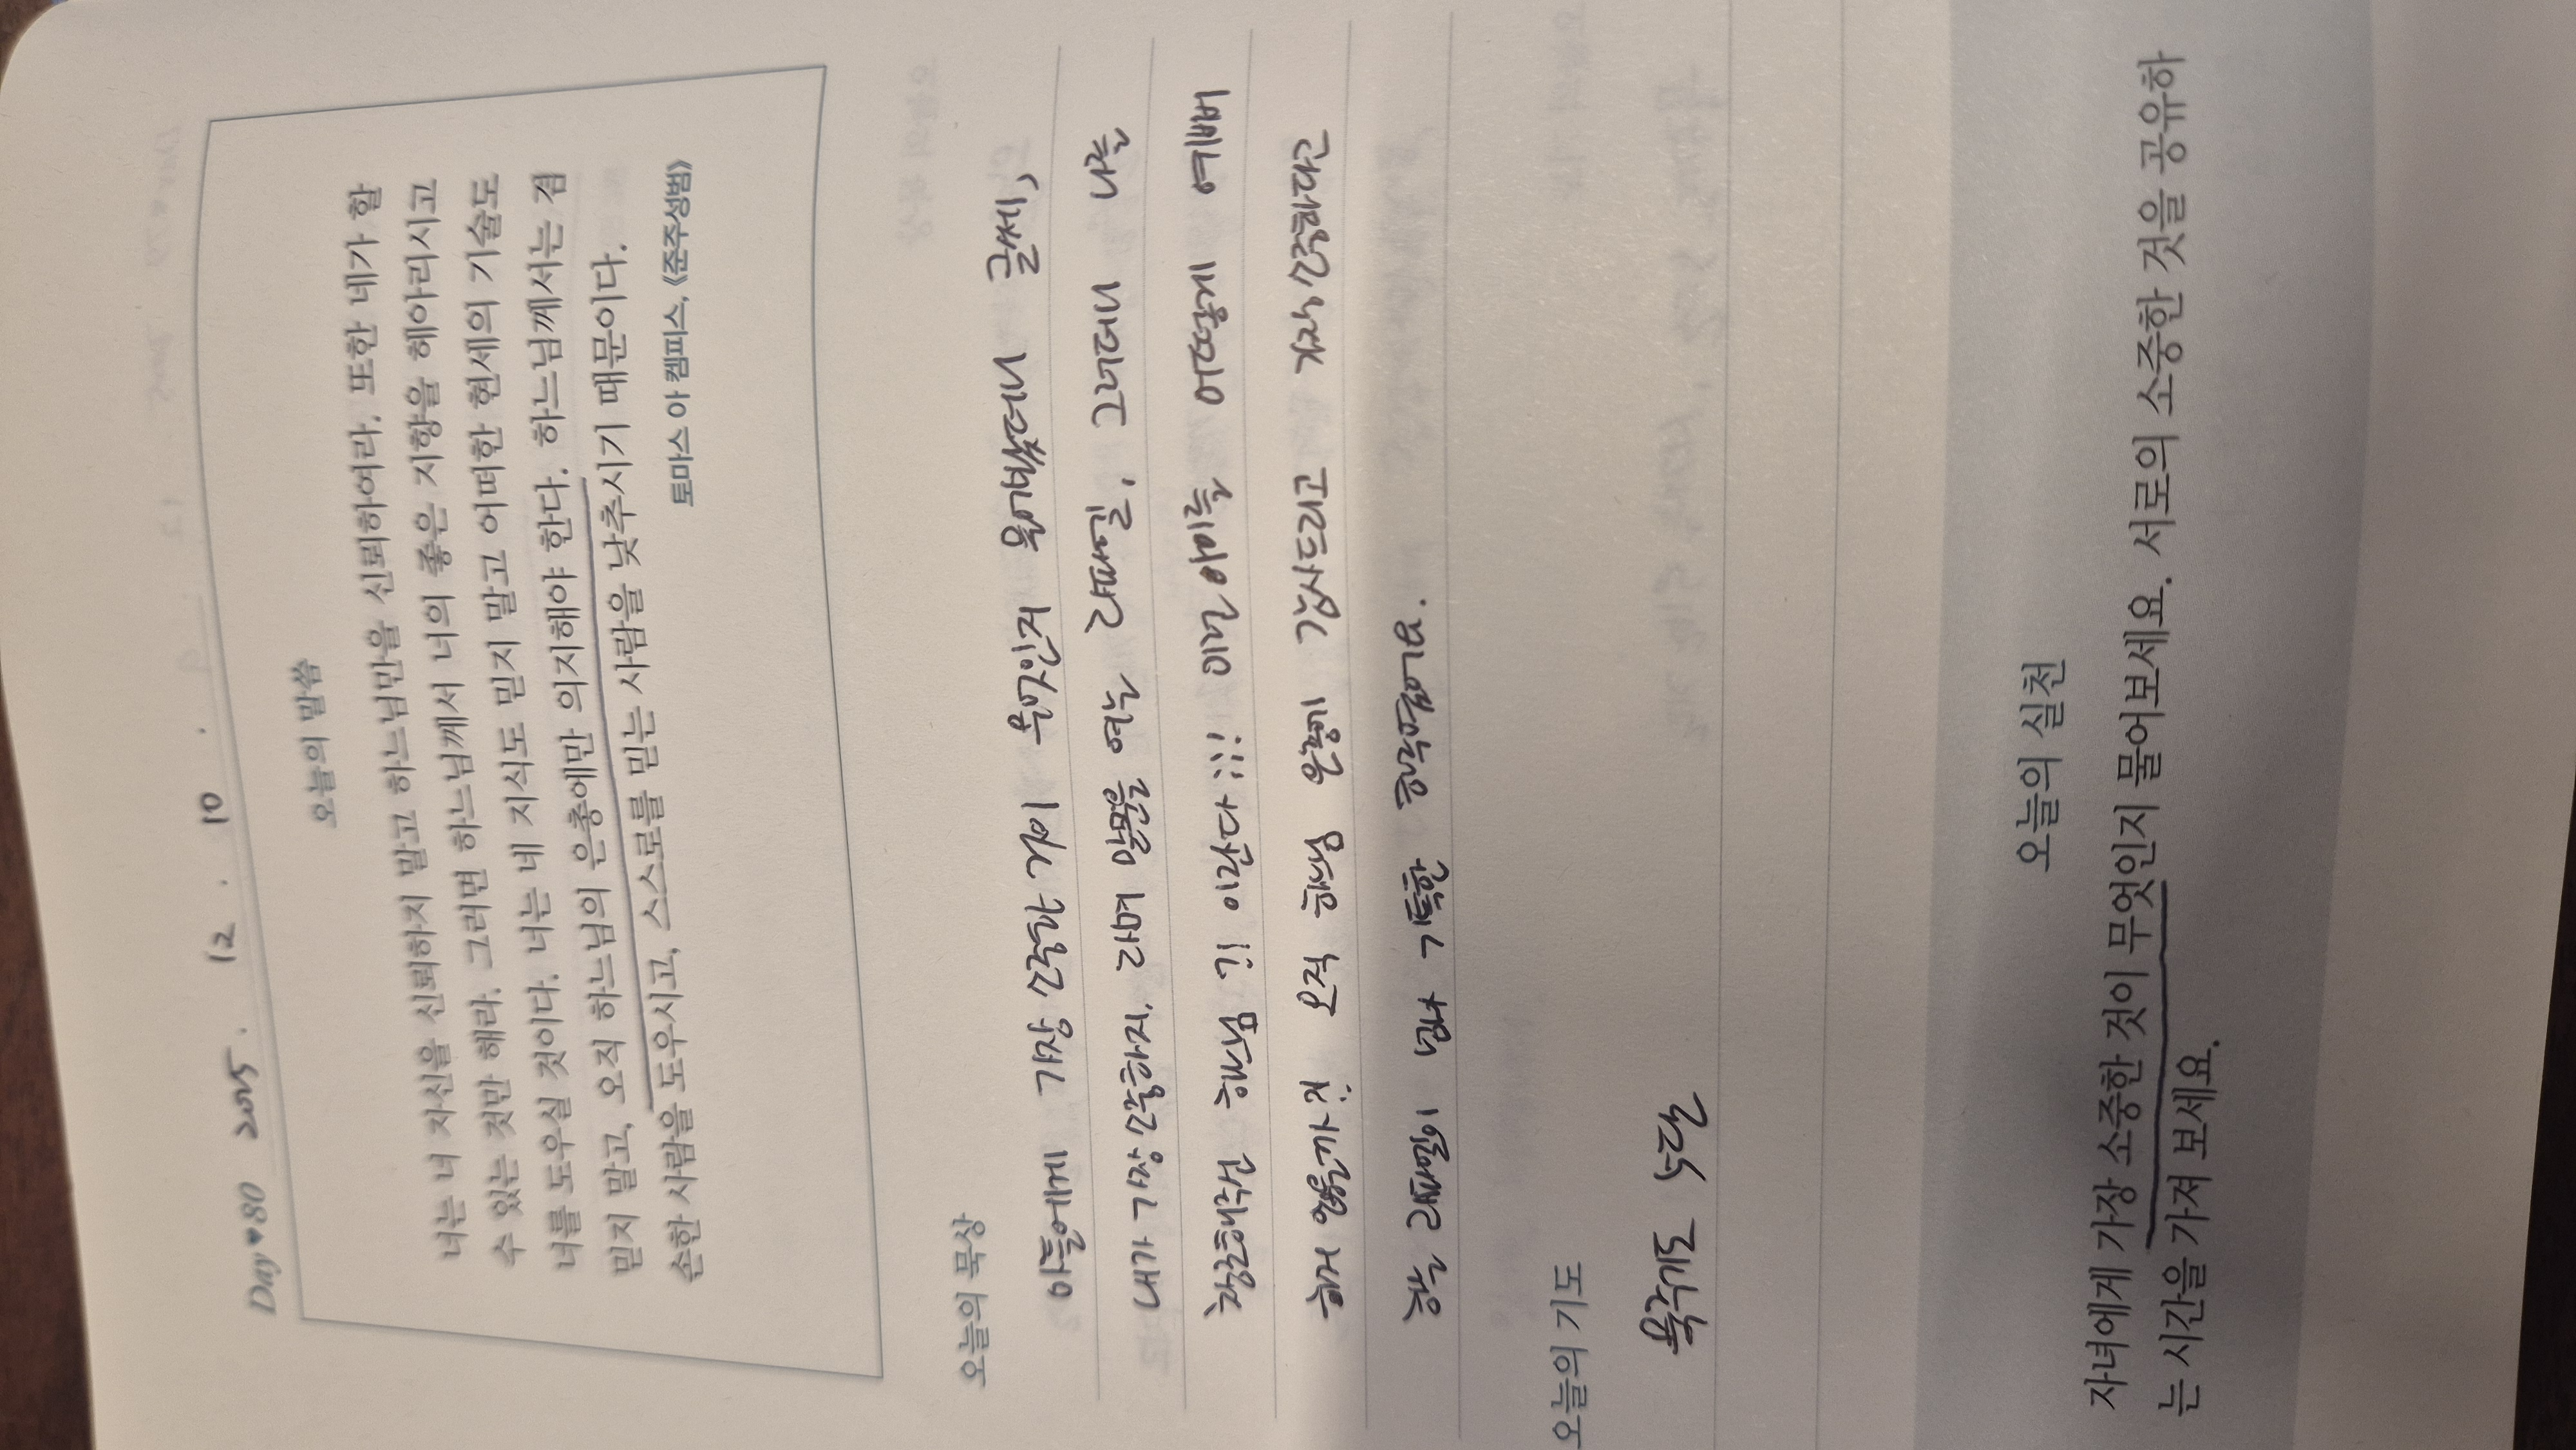 Day♥80 2025. 12. 10.
오늘의 말씀
너는 너 자신을 신뢰하지 말고 하느님만을 신뢰하여라. 또한 네가 할
수 있는 것만 해라. 그러면 하느님께서 너의 좋은 지향을 헤아리시고
너를 도우실 것이다. 너는 네 지식도 믿지 말고 어떠한 현세의 기술도
믿지 말고, 오직 하느님의 은총에만 의지해야 한다. 하느님께서는 겸
손한 사람을 도우시고, 스스로를 믿는 사람을 낮추시기 때문이다.
토마스 아 켐피스, 《준주성범》
오늘의 묵상
아들에게 가장 소중한 것이 무엇인지 물어봤더니 글쎄,
내가 가장 소중하지. 라며 말문을 여는 라파엘. 그러더니 나를
창조해주신 하느님 ?! 이란다 !!! 이런 아이를 어떻게 예뻐
하지 않을까? 오직 하느님 은총에 감사드리고 가장 소중하다고
하는 라파엘이 넘나 기특한 하루였어요.
오늘의 기도
묵주기도 5단
오늘의 실천
자녀에게 가장 소중한 것이 무엇인지 물어보세요. 서로의 소중한 것을 공유하
는 시간을 가져 보세요.